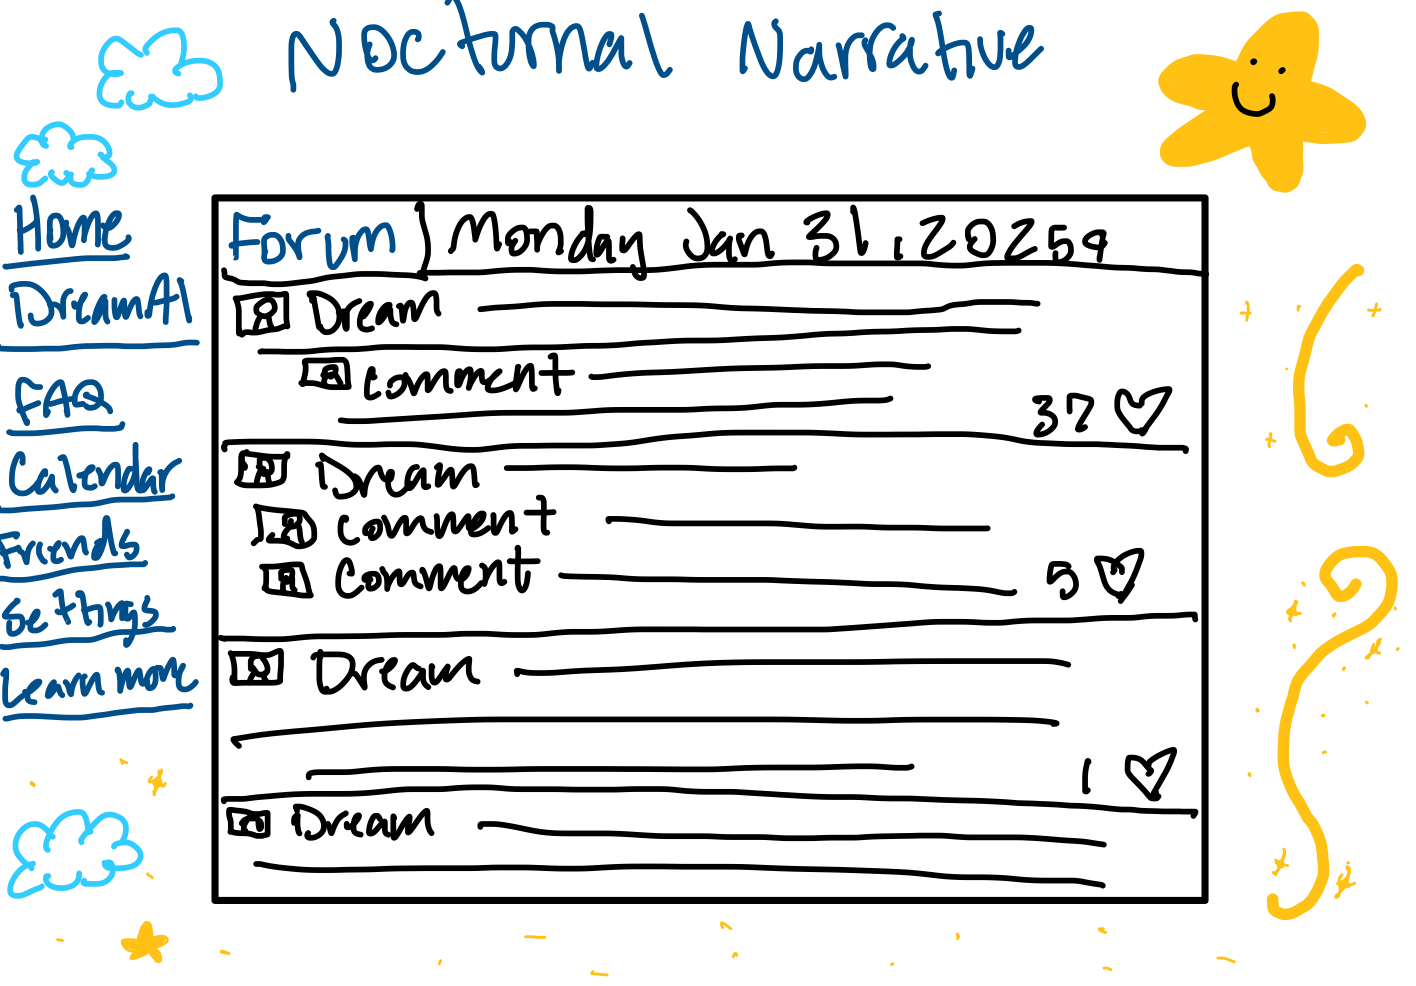 Nocturnal Narrative
Home
DreamAI
FAQ
Calendar
Friends
Settings
Learn more
Forum | Monday Jan 31, 20254
Dream
comment
37
Dream
comment
Comment
5
Dream
1
Dream